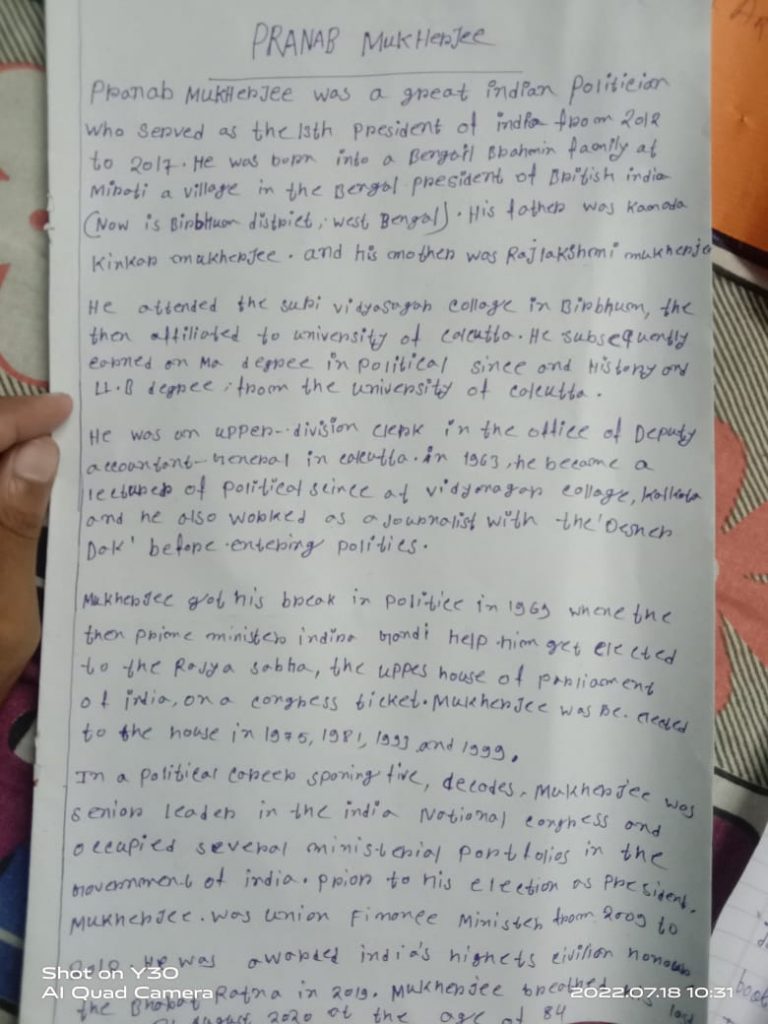 PRANAB MukHerJee
Pranab MukHerJee was a great indian Politicion
who served as the 13th President of india from 2012
to 2017. He was born into a Bengali Brahmin family at
Mirati a village in the Bengal president of British india
(Now is Birbhum district, West Bengal). His father was Kamada
Kinkar mukherjee. and his mother was Rajlakshmi mukherjee
He attended the suri vidyasagar collage in Birbhum, the
then affiliated to university of calcutta. He subsequently
earned on Ma degree in political since and History and
LL.B degree from the university of calcutta.
He was an upper-division clerk in the office of Deputy
accountant-General in calcutta. in 1963, he became a
lecturer of political seince at vidyasagar collage, Kolkata
and he also worked as a Journalist with the 'Desher
Dak' before entering politics.
Mukherjee got his break in politics in 1969 where the
then prime minister indira Gandi help him get elected
to the Rajya sabha, the uppes house of parliament
of india, on a congress ticket. Mukherjee was Re. elected
to the house in 1975, 1981, 1993 and 1999.
In a political career sponing five, decodes, Mukherjee was
senior leader in the india National congress and
occupied several ministerial portfolios in the
Government of india. prior to his election as President.
Mukherjee. was union Finance Minister from 2009 to
2012. He was awarded india's highets civilion honour
the Bharat Ratna in 2019. Mukherjee breathed his last
August 2020 at the age of 84
Shot on Y30
AI Quad Camera
2022.07.18 10:31